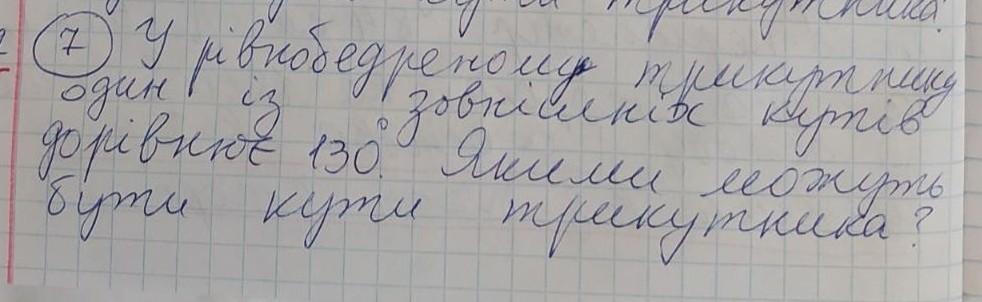 трикутника.
7 У рівнобедреному трикутнику
один із зовнішніх кутів
дорівнює 130°. Якими можуть
бути кути трикутника?